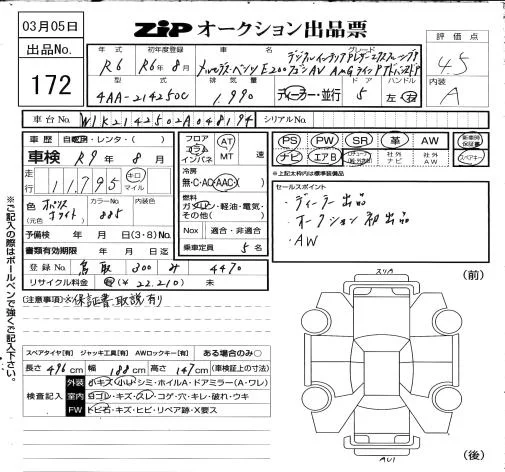 03月05日
ZIP オークション出品票
出品No.
172
評価点
4.5
内装
A
年式 初年度登録 車名 グレード
R6 R6年8月 メルセデス・ベンツ E200
型式 排気量 ドア ハンドル
4AA-214250C 1,990 ディーラー・並行 5 左・右
車台No. W1K2142502A048194 シリアルNo.
車歴 自家用・レンタ・( )
車検 R9年8月
走行 11,795 キロ マイル
色 (元色) オパリスホワイト カラーNo. 885 内装色
予備検 年 月 日(3・8)No.
書類有効期限 年 月 日
登録No. 鳥取 300 み 4470
リサイクル料金 有(¥22,210) 未
フロア コラム インパネ AT MT 速
冷房 無・C・AC・AAC・( )
燃料 ガソリン・軽油・電気・その他( )
Nox 適合・非適合
乗車定員 5名
PS PW SR 革 AW 新車時保証書
ナビ エアB 社外ナビ 社外AW スペアキー
※上記太枠内は標準装備品
セールスポイント
・ディーラー出品
・オークション初出品
・AW
(注意事項)※保証書・取説有り
※ご記入の際はボールペンで強くご記入下さい。
スペアタイヤ[有] ジャッキ工具[有] AWロックキー[有] ある場合のみ○
長さ 496cm 幅 188cm 高さ 147cm (車検証上の寸法)
検査記入
外装 小キズ・小凹・シミ・ホイルA・ドアミラー(A・ワレ)
室内 ヨゴレ・キズ・スレ・コゲ・穴・キレ・破れ・ウキ
FW トビ石・キズ・ヒビ・リペア跡・X要ス
(前)
(後)